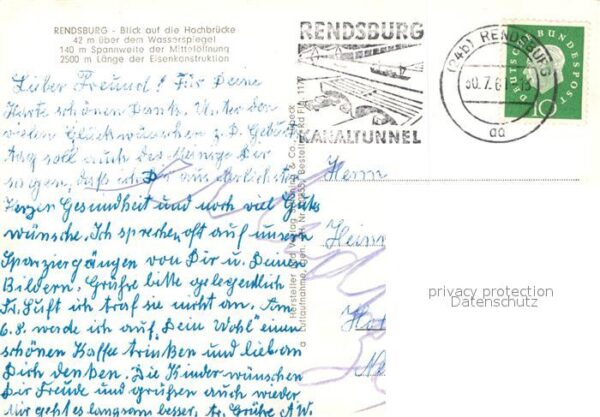 RENDSBURG - Blick auf die Hochbrücke
42 m über dem Wasserspiegel
140 m Spannweite der Mittelöffnung
2500 m Länge der Eisenkonstruktion
RENDSBURG
KANALTUNNEL
(24b) RENDSBURG
30.7.6
aa
DEUTSCHE BUNDESPOST
10
Lieber Freund! Für Deine
Karte schönen Dank. Unter den
vielen Glückwünschen z. D. Geburts
Tag soll auch der Meinige Dir
sagen, daß ich Dir aus
Herzen Gesundheit und noch viel Gutes
wünsche. Ich spreche oft auf unsern
Spaziergängen von Dir u. Deinen
Bildern. Grüße bitte gelegentlich
Fr. ich traf sie nicht an. Am
6.8. werde ich auf "Dein Wohl" einen
schönen Kaffee trinken und lieb an
Dich denken. Die Kinder wünschen
Dir Freude und grüßen auch wieder
Mir geht es langsam besser. Gr. Grüße A.W.
Herrn
Hein
privacy protection
Datenschutz